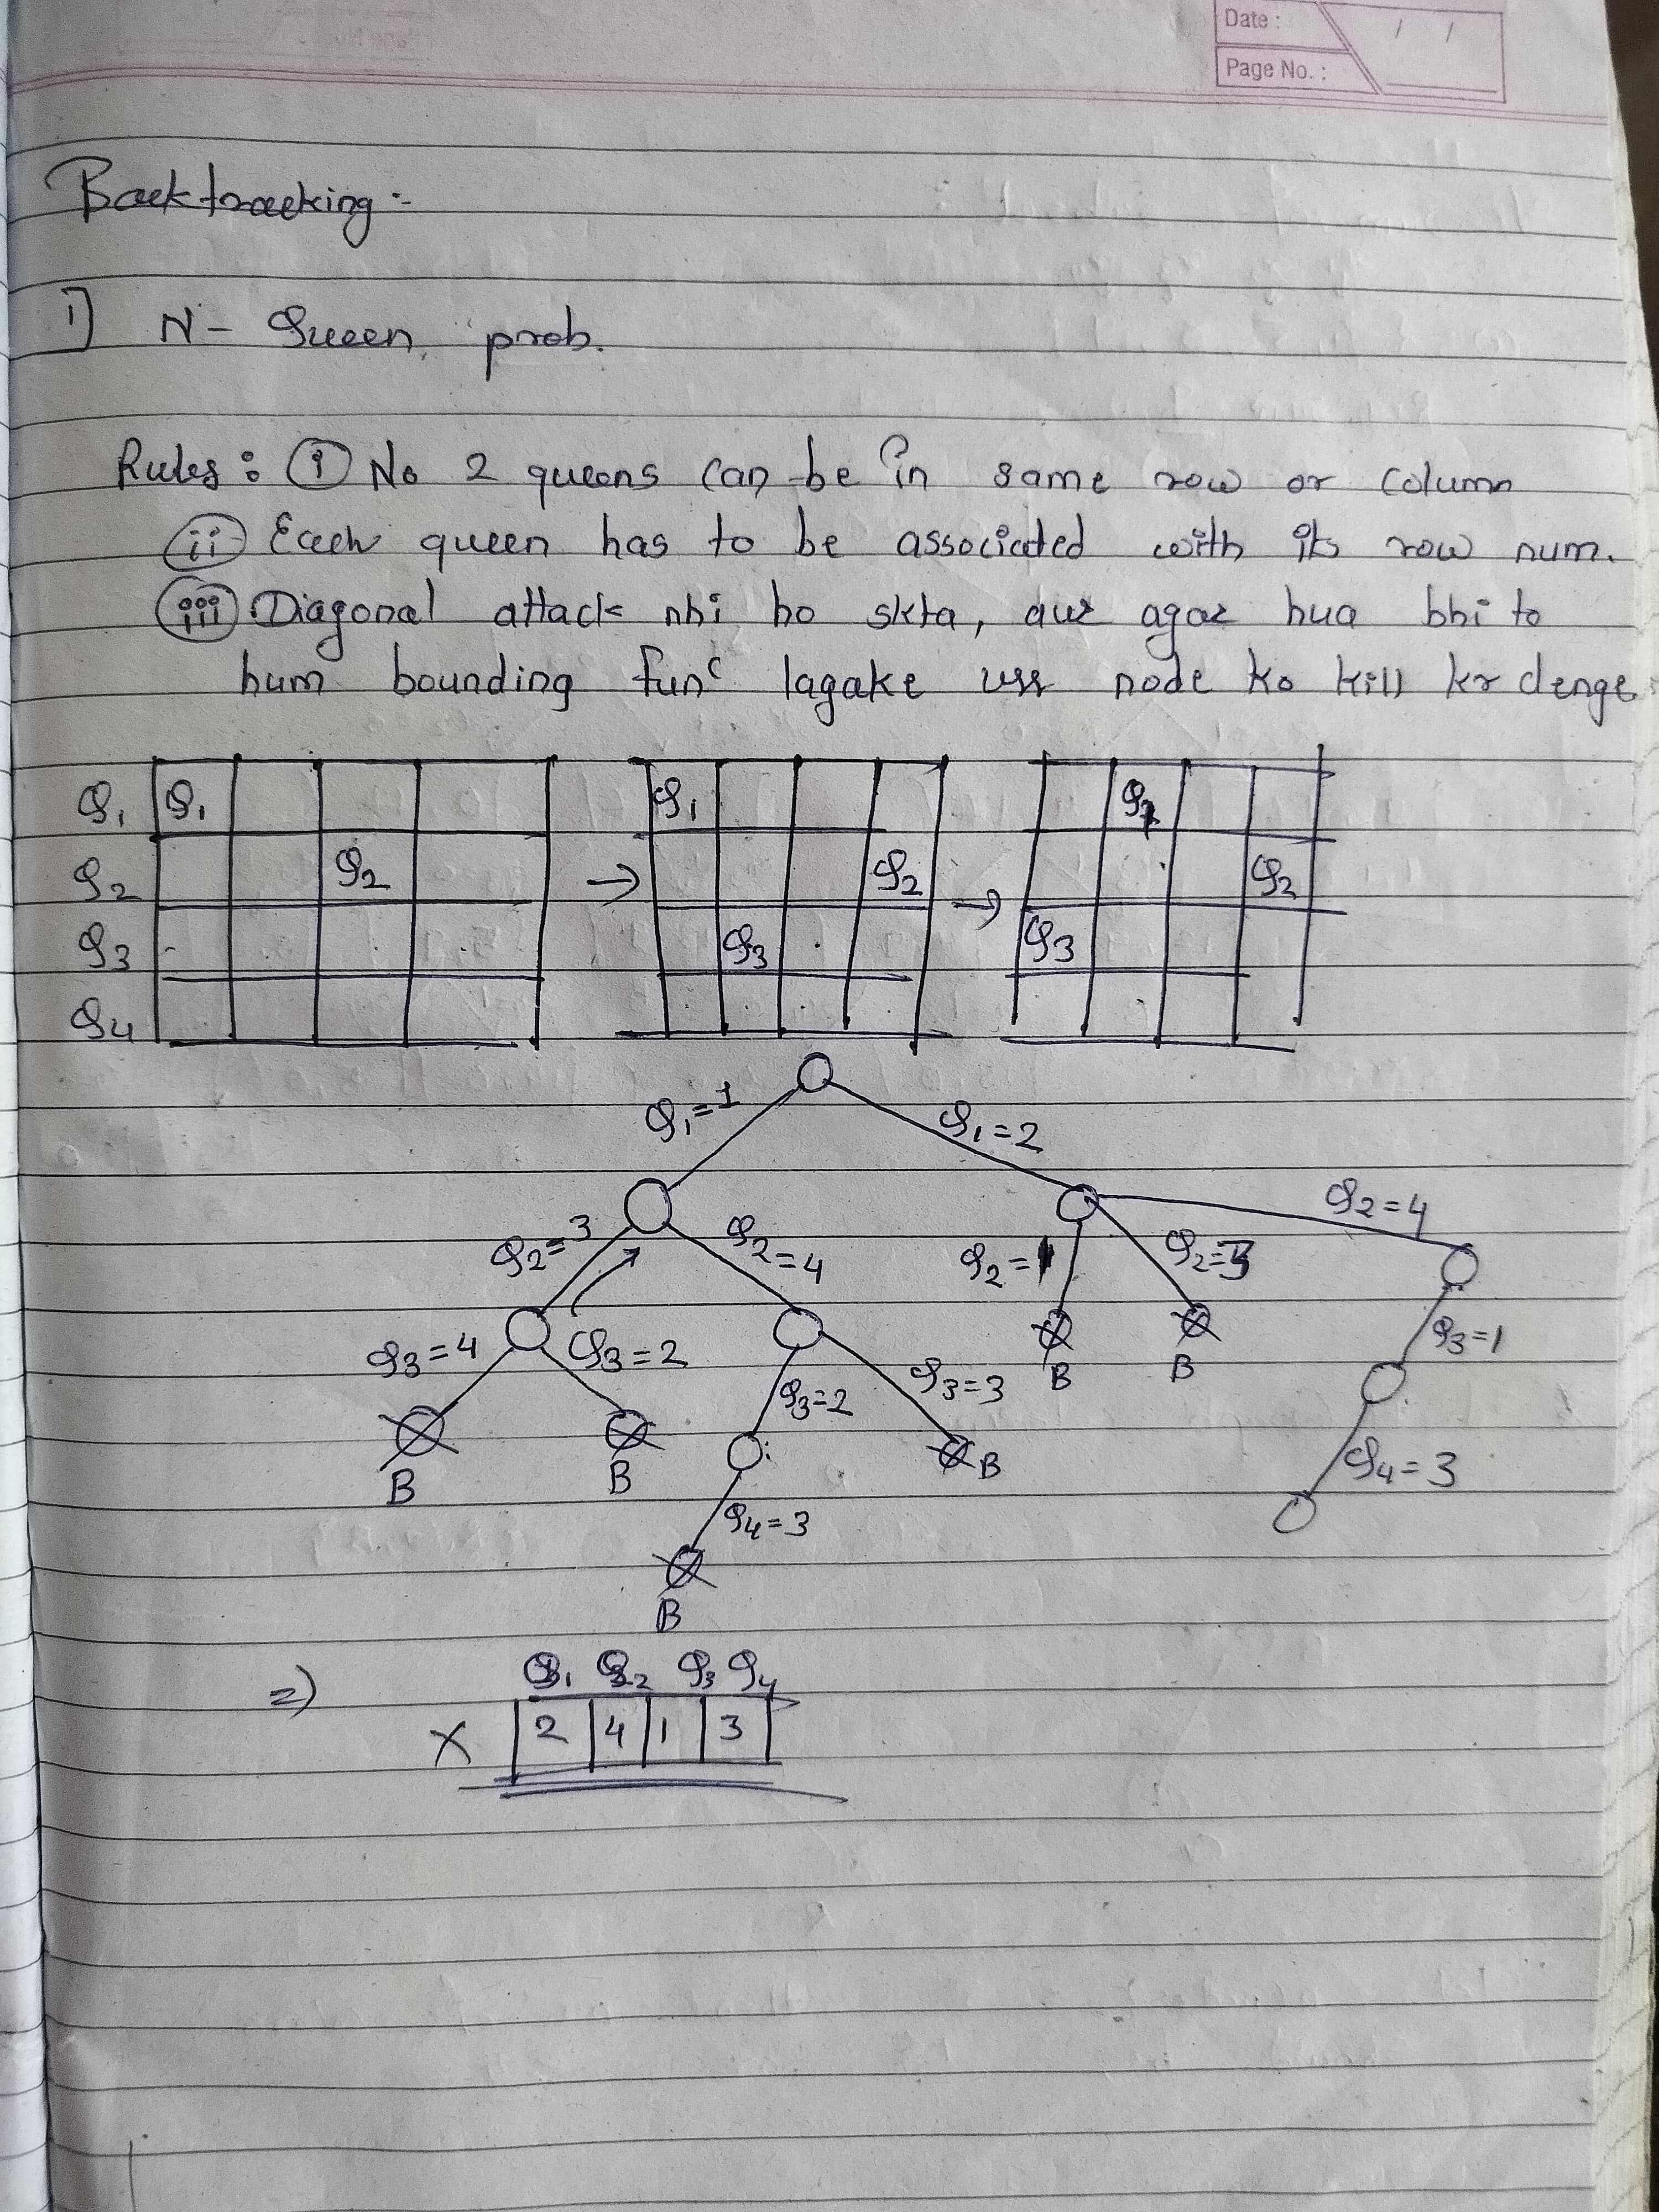 Date : / /
Page No. :
Backtracking :-
1] N - Queen prob.
Rules : (i) No 2 queens can be in same row or column
(ii) Each queen has to be associated with its row num.
(iii) Diagonal attack nhi ho skta, aur agar hua bhi to
hum bounding funᶜ lagake uss node ko kill kr denge
Q1 Q1 → Q1 → Q1
Q2 Q2 Q2 Q2
Q3 Q3 Q3
Q4
Q1=1 Q1=2
Q2=3 Q2=4 Q2=1 Q2=3 Q2=4
Q3=4 Q3=2 Q3=2 Q3=3 B B Q3=1
B B B Q4=3
Q4=3
B
=) Q1 Q2 Q3 Q4
X 2 4 1 3